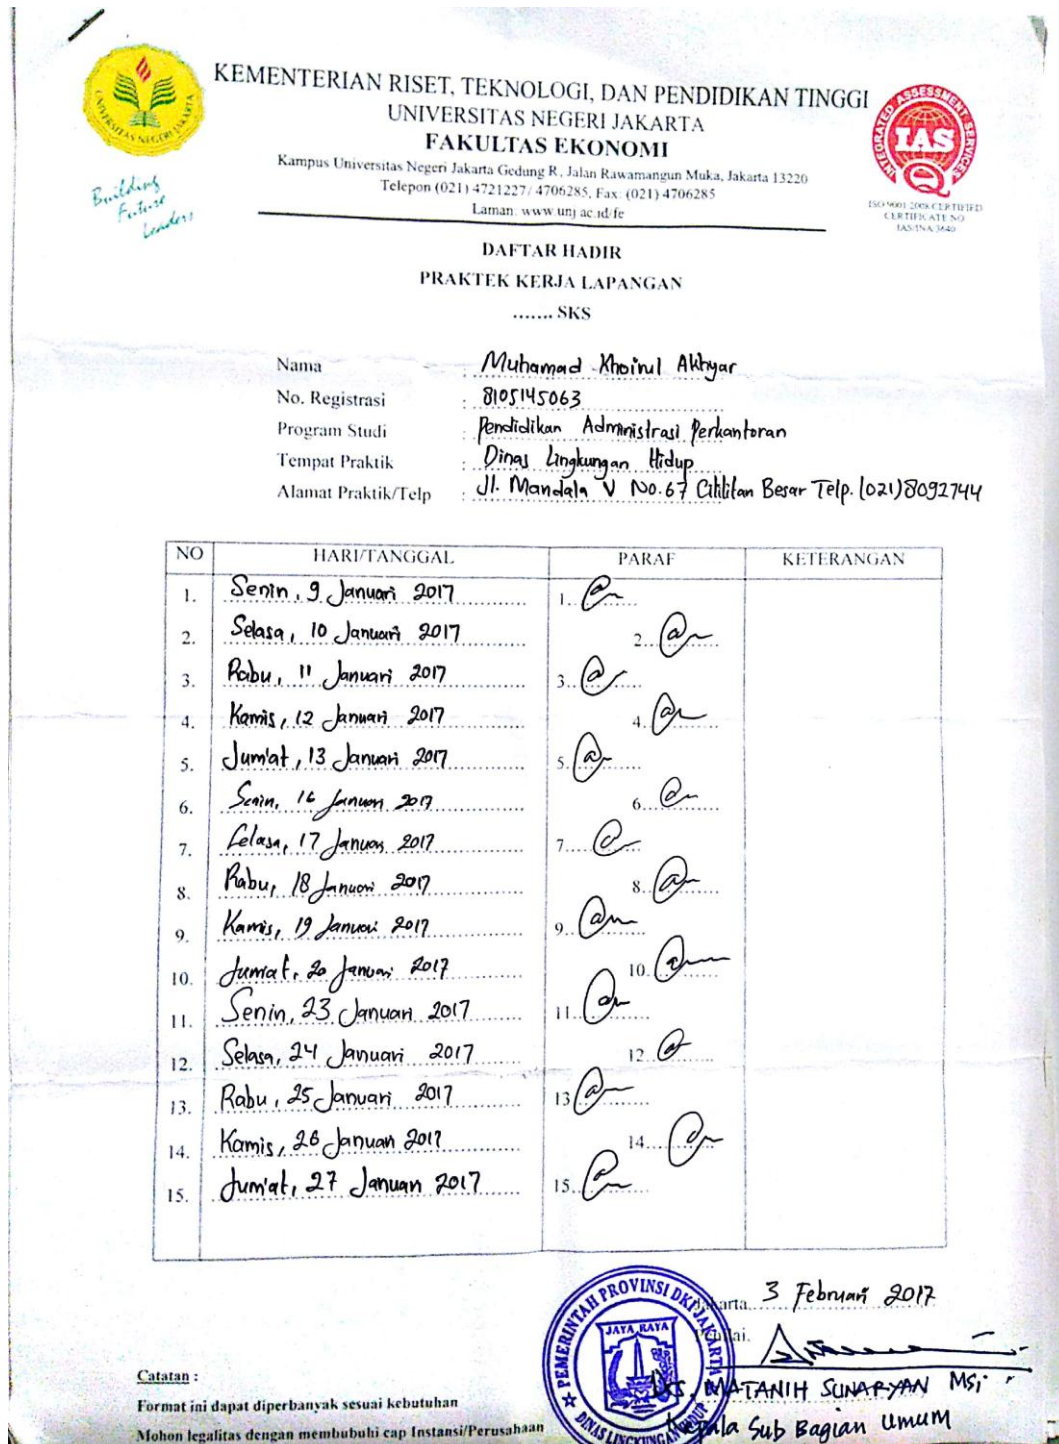 KEMENTERIAN RISET, TEKNOLOGI, DAN PENDIDIKAN TINGGI
UNIVERSITAS NEGERI JAKARTA
FAKULTAS EKONOMI
Kampus Universitas Negeri Jakarta Gedung R, Jalan Rawamangun Muka, Jakarta 13220
Telepon (021) 4721227/ 4706285, Fax: (021) 4706285
Laman: www.unj.ac.id/fe
UNIVERSITAS NEGERI JAKARTA
Building
Future
Leaders
INTEGRATED ASSESSMENT SERVICES
IAS
ISO 9001:2008 CERTIFIED
CERTIFICATE NO
IAS/INA/3640
DAFTAR HADIR
PRAKTEK KERJA LAPANGAN
....... SKS
Nama : Muhamad Khoirul Akhyar
No. Registrasi : 8105145063
Program Studi : Pendidikan Administrasi Perkantoran
Tempat Praktik : Dinas Lingkungan Hidup
Alamat Praktik/Telp : Jl. Mandala V No.67 Cililitan Besar Telp. (021)8092744
NO HARI/TANGGAL PARAF KETERANGAN
1. Senin, 9 Januari 2017 1.
2. Selasa, 10 Januari 2017 2.
3. Rabu, 11 Januari 2017 3.
4. Kamis, 12 Januari 2017 4.
5. Jum'at, 13 Januari 2017 5.
6. Senin, 16 Januari 2017 6.
7. Selasa, 17 Januari 2017 7.
8. Rabu, 18 Januari 2017 8.
9. Kamis, 19 Januari 2017 9.
10. Jum'at, 20 Januari 2017 10.
11. Senin, 23 Januari 2017 11.
12. Selasa, 24 Januari 2017 12.
13. Rabu, 25 Januari 2017 13.
14. Kamis, 26 Januari 2017 14.
15. Jum'at, 27 Januari 2017 15.
Jakarta, 3 Februari 2017
Penilai,
PEMERINTAH PROVINSI DKI JAKARTA
JAYA RAYA
DINAS LINGKUNGAN HIDUP
Drs. MATANIH SUNARYAN MSi
Kepala Sub Bagian Umum
Catatan :
Format ini dapat diperbanyak sesuai kebutuhan
Mohon legalitas dengan membubuhi cap Instansi/Perusahaan